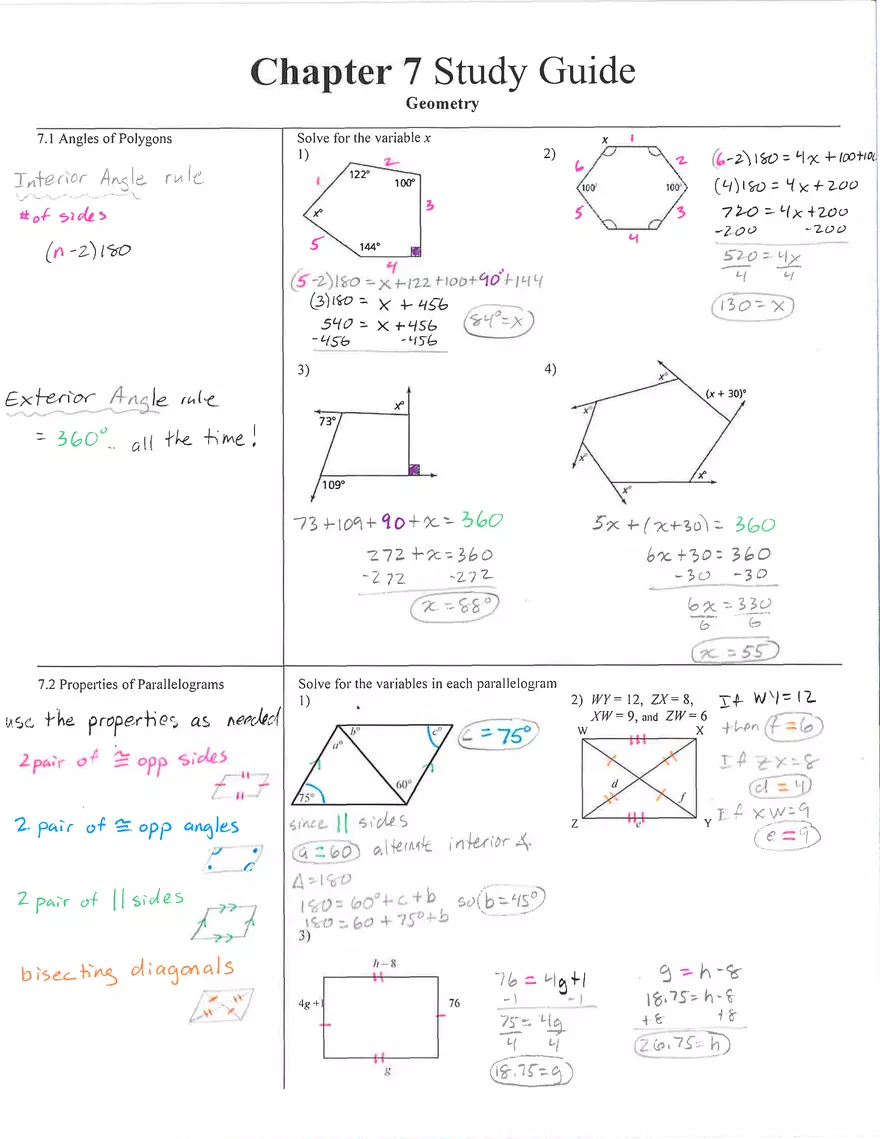 Chapter 7 Study Guide
Geometry
7.1 Angles of Polygons
Interior Angle rule
# of sides
(n-2)180
Exterior Angle rule
= 360° .. all the time!
Solve for the variable x
1)
1
2
3
4
5
122°
100°
x°
144°
(5-2)180 = x+122+100+90°+144
(3)180 = x + 456
540 = x + 456
-456 -456
84°=x
2)
x
1
2
3
4
5
6
100°
100°
(6-2)180 = 4x + 100+100
(4)180 = 4x + 200
720 = 4x + 200
-200 -200
520 = 4x
4 4
130 = x
3)
x°
73°
109°
73 + 109 + 90 + x = 360
272 + x = 360
-272 -272
x = 88°
4)
x°
(x + 30)°
x°
x°
x°
x°
5x + (x+30) = 360
6x + 30 = 360
-30 -30
6x = 330
6 6
x = 55
7.2 Properties of Parallelograms
use the properties as needed
2 pair of ≅ opp sides
2 pair of ≅ opp angles
2 pair of || sides
bisecting diagonals
Solve for the variables in each parallelogram
1)
a°
b°
c°
75°
60°
c = 75°
since || sides
a = 60 alternate interior ∠.
Δ=180
180 = 60° + c + b so b = 45°
180 = 60 + 75° + b
2) WY = 12, ZX = 8,
XW = 9, and ZW = 6
W X
d
f
Z e Y
If WY=12
then f = 6
If ZX=8
d = 4
If XW=9
e = 9
3)
h – 8
4g + 1
76
g
76 = 4g+1
-1 -1
75 = 4g
4 4
18.75 = g
g = h-8
18.75 = h-8
+8 +8
26.75 = h